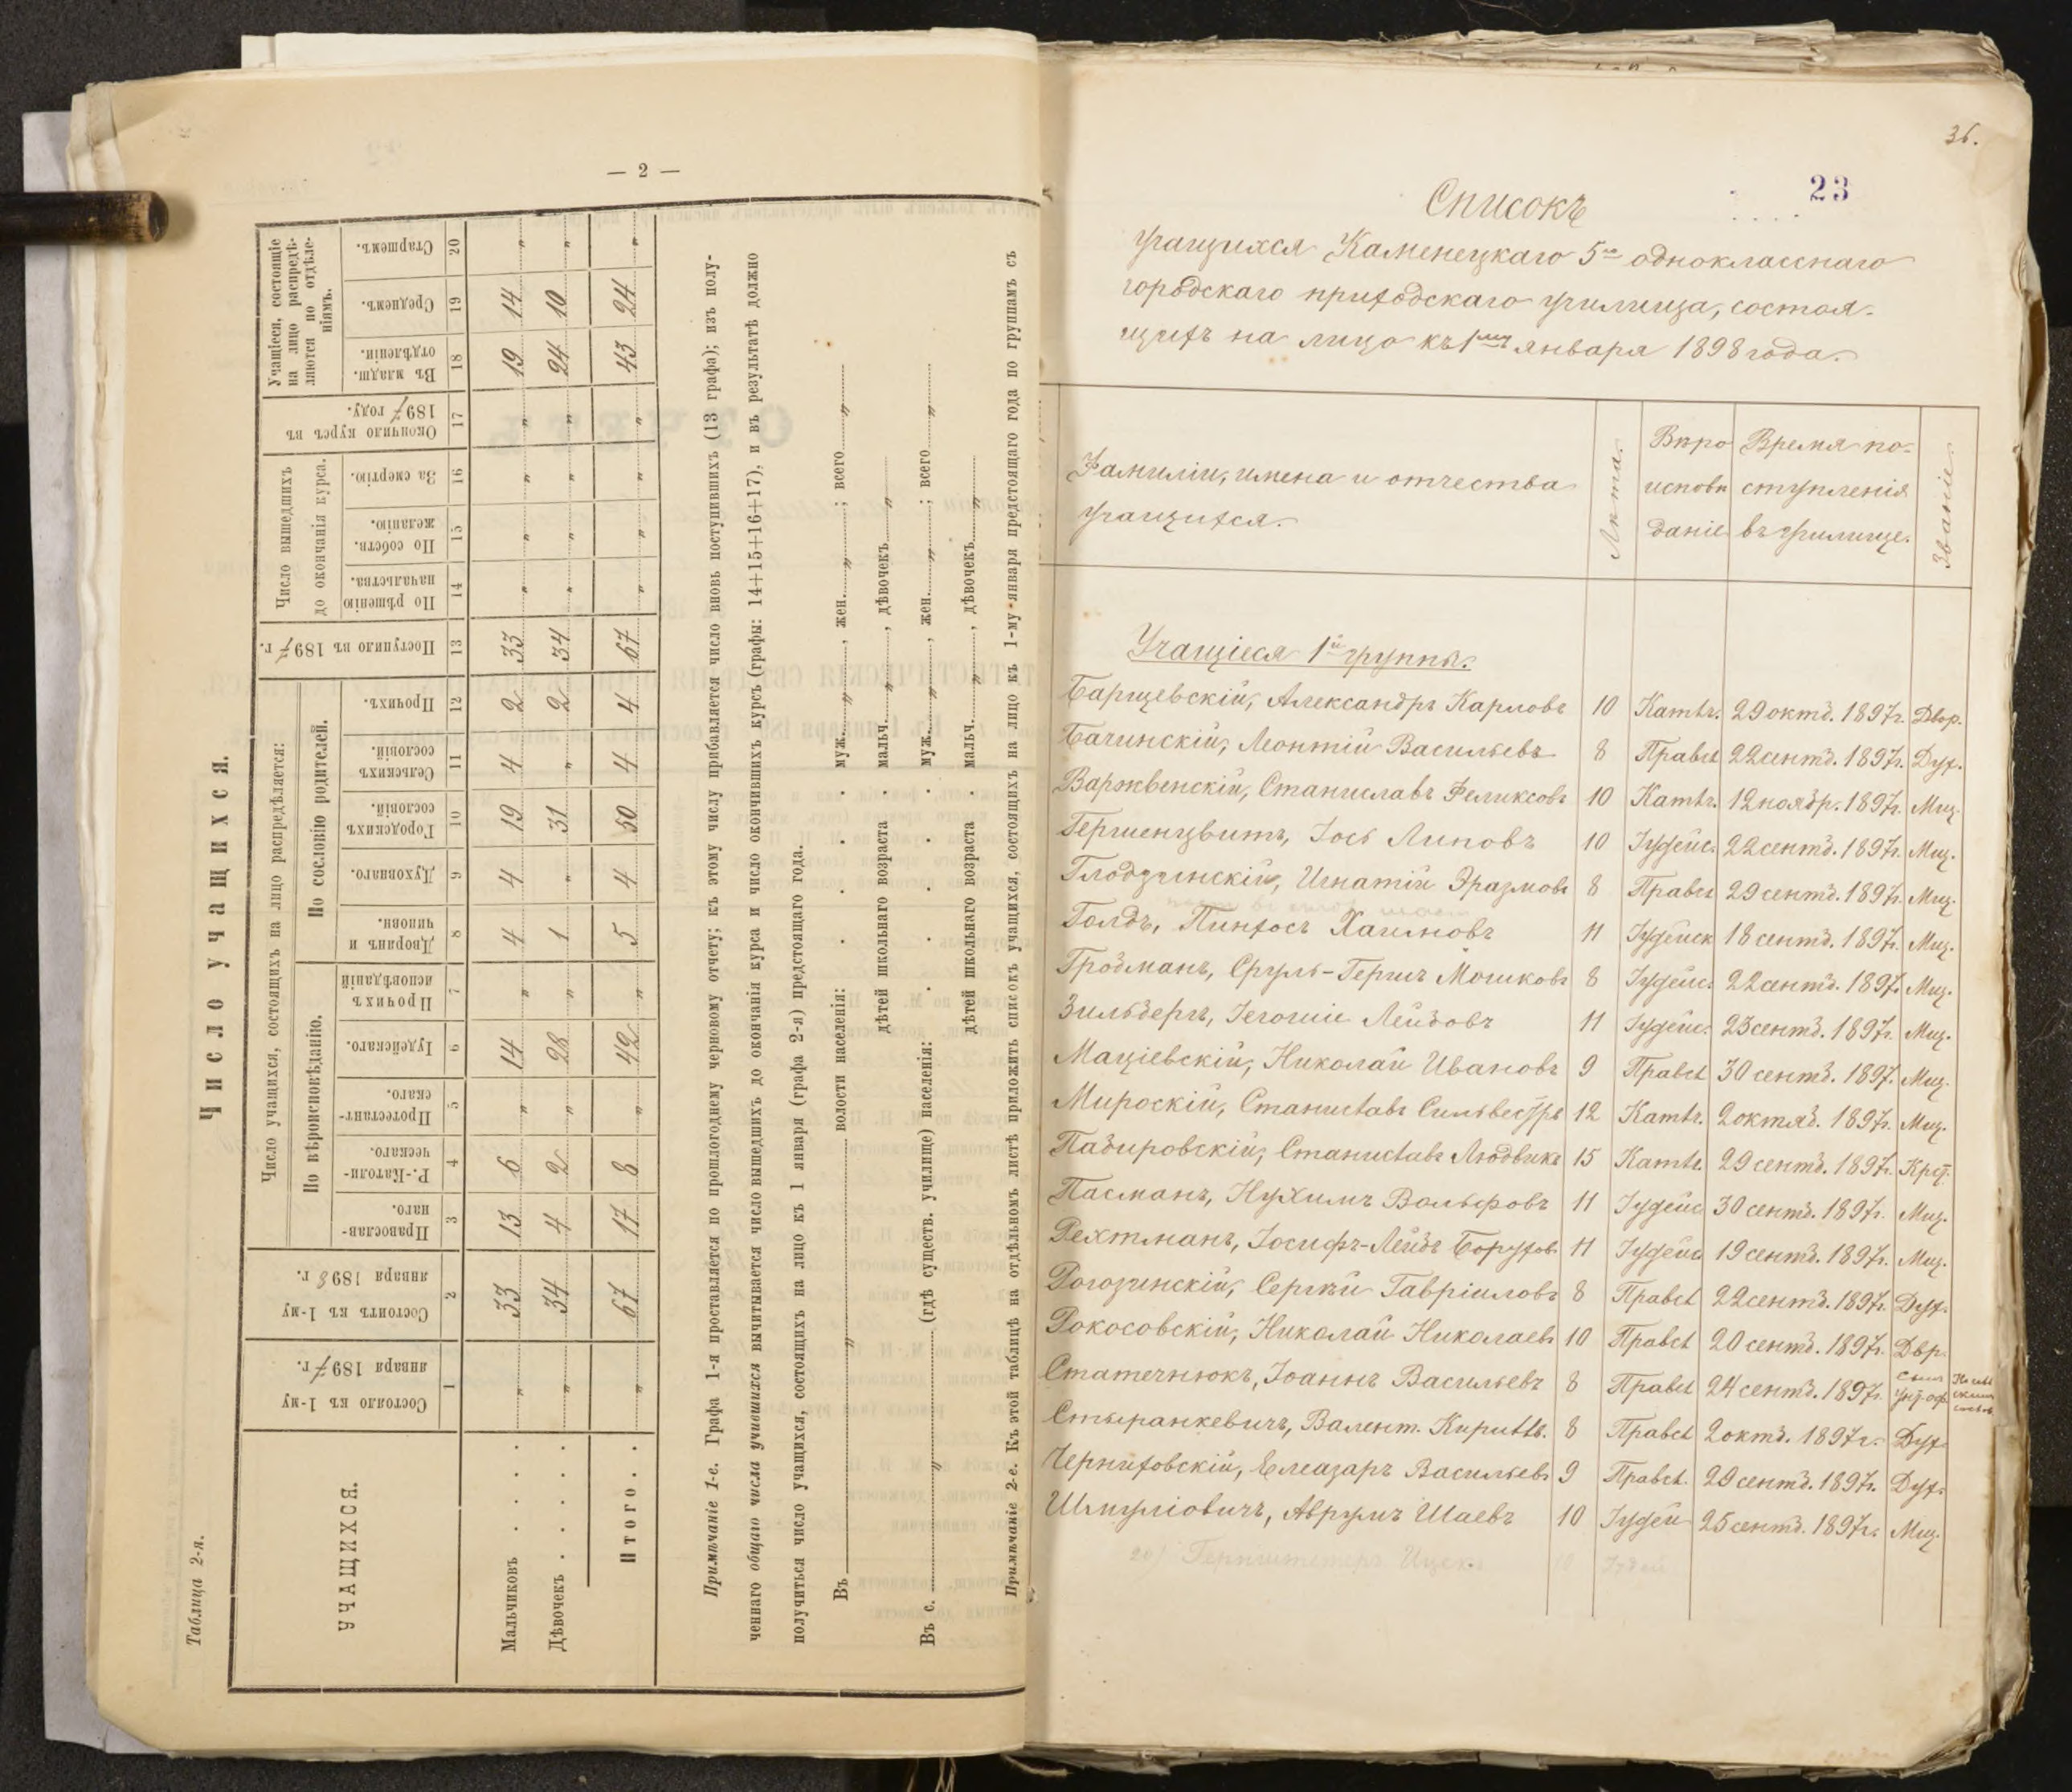 — 2 —
Таблица 2-я.
Число учащихся.
УЧАЩИХСЯ.
Состояло къ 1-му января 1897 г.
Состоитъ къ 1-му января 1898 г.
Число учащихся, состоящихъ на лицо распредѣляется:
По вѣроисповѣданію.
Православнаго.
Р.-Католическаго.
Протестантскаго.
Іудейскаго.
Прочихъ исповѣданій
По сословію родителей.
Дворянъ и чиновн.
Духовнаго.
Городскихъ сословій.
Сельскихъ сословій.
Прочихъ.
Поступило въ 1897 г.
Число вышедшихъ до окончанія курса.
По рѣшенію начальства.
По собств. желанію.
За смертію.
Окончило курсъ въ 1897 году.
Учащіеся, состоящіе на лицо распредѣляются по отдѣленіямъ.
Въ младш. отдѣленіи.
Среднемъ.
Старшемъ.
1 2 3 4 5 6 7 8 9 10 11 12 13 14 15 16 17 18 19 20
Мальчиковъ . . . „ 33 13 6 „ 14 „ 4 4 19 4 2 33 „ „ „ „ 19 14 „
Дѣвочекъ . . . . „ 34 4 2 „ 28 „ 1 „ 31 „ 2 34 „ „ „ „ 24 10 „
Итого . . „ 67 17 8 „ 42 „ 5 4 50 4 4 67 „ „ „ „ 43 24 „
Примѣчаніе 1-е. Графа 1-я проставляется по прошлогоднему черновому отчету; къ этому числу прибавляется число вновь поступившихъ (13 графа); изъ полу-
ченнаго общаго числа учившихся вычитывается число вышедшихъ до окончанія курса и число окончившихъ курсъ (графы: 14+15+16+17), и въ результатѣ должно
получиться число учащихся, состоящихъ на лицо къ 1 января (графа 2-я) предстоящаго года.
Въ „ волости населенія: муж. „ , жен. „ ; всего „
дѣтей школьнаго возраста . мальч. „ , дѣвочекъ „
Въ с. „ (гдѣ существ. училище) населенія: муж. „ , жен. „ ; всего „
дѣтей школьнаго возраста . мальч. „ , дѣвочекъ „
Примѣчаніе 2-е. Къ этой таблицѣ на отдѣльномъ листѣ приложить списокъ учащихся, состоящихъ на лицо къ 1-му января предстоящаго года по группамъ съ
36.
23
Списокъ
учащихся Каменецкаго 5го одноклаcснаго
городскаго приходскаго училища, состоя-
щихъ на лицо къ 1му января 1898 года.
Фамиліи, имена и отчества учащихся.
Лѣта.
Вѣроисповѣданіе
Время поступленія въ училище.
Званіе.
Учащіеся 1й группы.
Барщевскій, Александръ Карловъ 10 Катол. 29 октб. 1897г. Двор.
Бачинскій, Леонтій Васильевъ 8 Правсл 22 сентб. 1897г. Дух.
Варжвенскій, Станиславъ Феликсовъ 10 Катол. 12 ноябр. 1897г. Мщ.
Гершенцвитъ, Іось Липовъ 10 Іудейс. 22 сентб. 1897г. Мщ.
Глодзинскій, Игнатій Эразмовъ 8 Правсл 29 сентб. 1897г. Мщ.
Голдъ, Пинхосъ Хаимовъ 11 Іудейск 18 сентб. 1897г. Мщ.
Гройсманъ, Сруль-Гершъ Мошковъ 8 Іудейс. 22 сентб. 1897. Мщ.
Зильберъ, Іегошіе Лейбовъ 11 Іудейс. 23 сентб. 1897г. Мщ.
Маціевскій, Николай Ивановъ 9 Правсл 30 сентб. 1897. Мщ.
Мироскій, Станиславъ Сильвестръ 12 Катол. 2 октяб. 1897г. Мщ.
Падировскій, Станиславъ Людвик. 15 Катол. 29 сентб. 1897г. Крст.
Пасманъ, Нухимъ Вольфовъ 11 Іудейс 30 сентб. 1897г. Мщ.
Рехтманъ, Іосифъ-Лейбъ Борухов. 11 Іудейс 19 сентб. 1897г. Мщ.
Рогозинскій, Сергѣй Гавріиловъ 8 Правсл 22 сентб. 1897г. Дух.
Рокосовскій, Николай Николаевъ 10 Правсл 20 сентб. 1897г. Двр.
Статечнюкъ, Іоаннъ Васильевъ 8 Правсл 24 сентб. 1897г. сынъ унт-оф
Стыранкевичъ, Валент. Кирилл. 8 Правсл 2 октб. 1897г. Дух
Чернѣховскій, Елеазаръ Васильевъ 9 Правсл. 29 сентб. 1897г. Дух.
Шмуліовичъ, Аврумъ Шаевъ 10 Іудей 25 сентб. 1897г. Мщ.